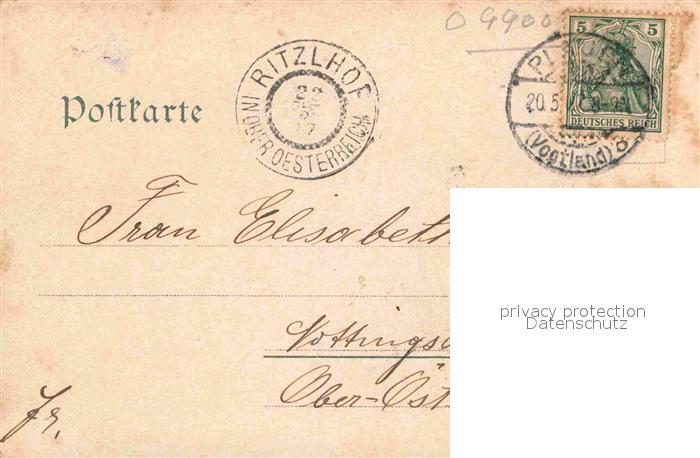 O 9900
5 5
DEUTSCHES REICH
20.5
(Vogtland)
RITZLHOF
IN OBER OESTERREICH
22
5
17
Postkarte
Frau Elisabeth
privacy protection
Datenschutz
Ober-Öst
Fr.